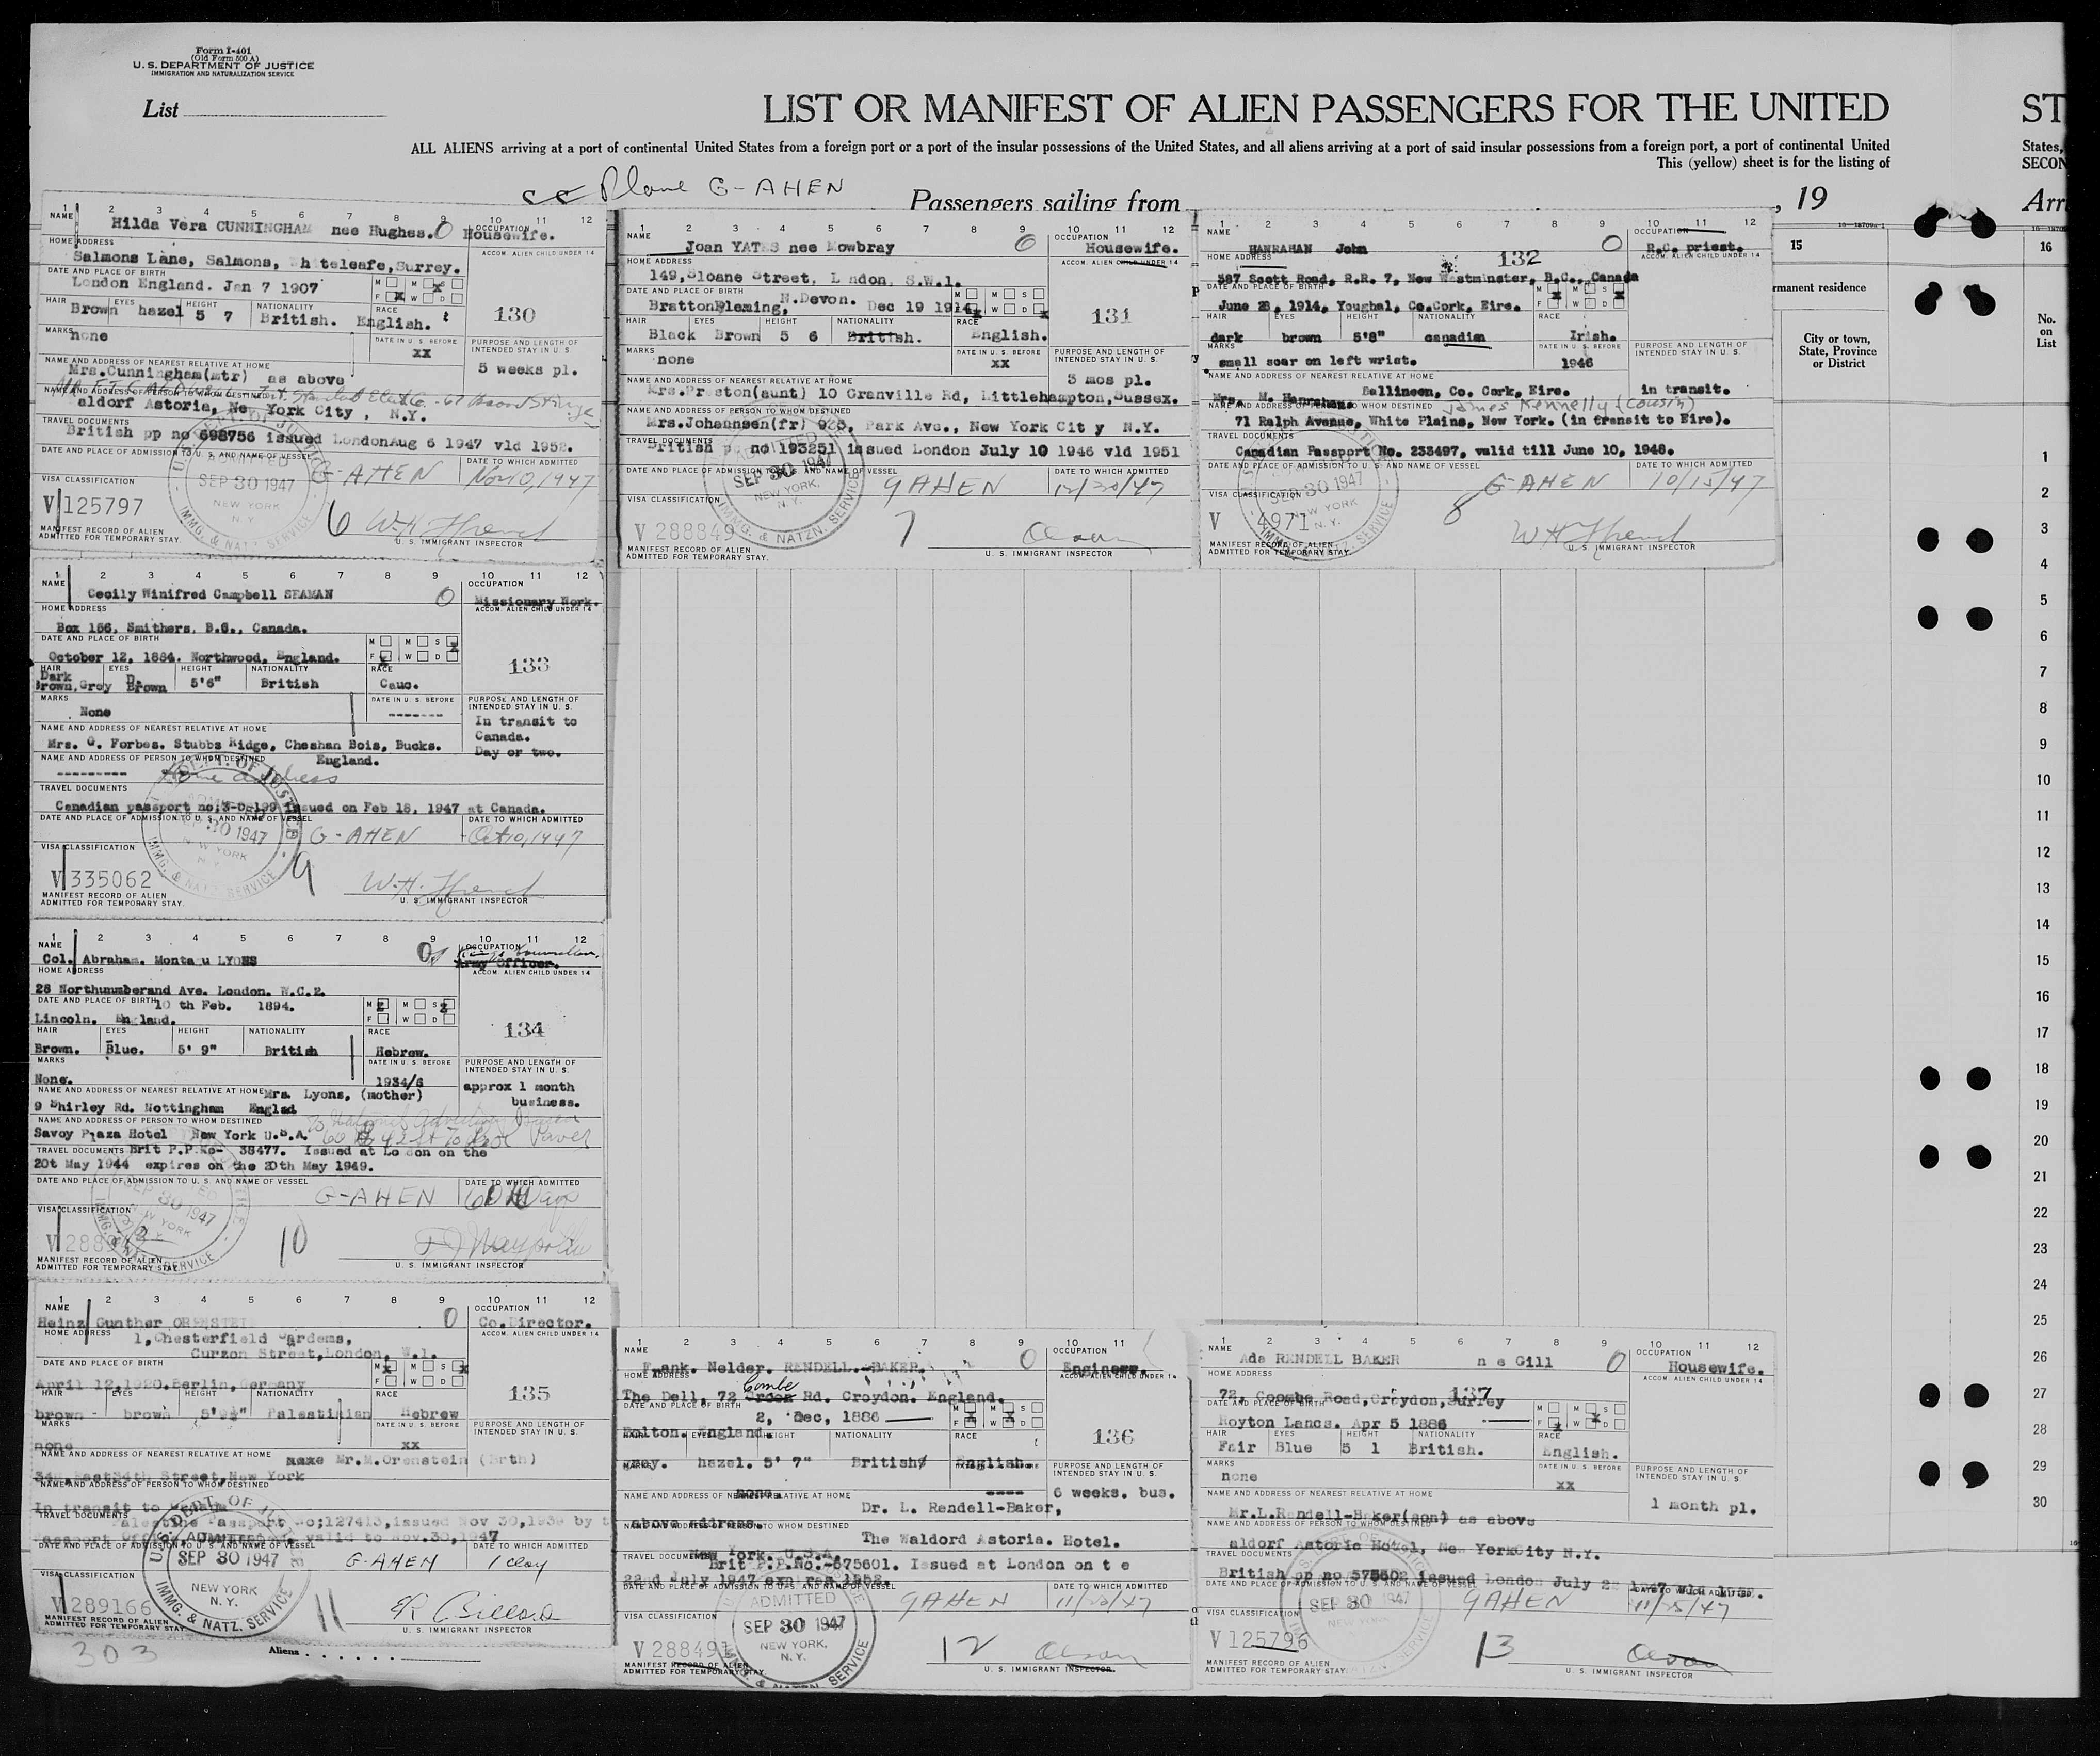 Form I-401
(Old Form 500 A)
U. S. DEPARTMENT OF JUSTICE
IMMIGRATION AND NATURALIZATION SERVICE
List
LIST OR MANIFEST OF ALIEN PASSENGERS FOR THE UNITED ST
ALL ALIENS arriving at a port of continental United States from a foreign port or a port of the insular possessions of the United States, and all aliens arriving at a port of said insular possessions from a foreign port, a port of continental United States,
This (yellow) sheet is for the listing of SECON
Plane G-AHEN
Passengers sailing from , 19 Arri
1 2 3 4 5 6 7 8 9 10 11 12
NAME Hilda Vera CUNNINGHAM nee Hughes. 0
OCCUPATION Housewife.
HOME ADDRESS ACCOM. ALIEN CHILD UNDER 14
Salmons Lane, Salmons, Whiteleafe, Surrey.
DATE AND PLACE OF BIRTH
London England. Jan 7 1907
M M S F W D
HAIR EYES HEIGHT NATIONALITY RACE
Brown hazel 5 7 British. English.
130
MARKS none
DATE IN U. S. BEFORE xx
PURPOSE AND LENGTH OF INTENDED STAY IN U. S.
5 weeks pl.
NAME AND ADDRESS OF NEAREST RELATIVE AT HOME
Mrs.Cunningham(mtr) as above
NAME AND ADDRESS OF PERSON TO WHOM DESTINED
aldorf Astoria, Ne York City , N.Y.
TRAVEL DOCUMENTS
British pp no 698756 issued LondonAug 6 1947 vld 1952.
DATE AND PLACE OF ADMISSION TO U. S. AND NAME OF VESSEL DATE TO WHICH ADMITTED
ADMITTED SEP 30 1947 NEW YORK N. Y. IMMG. & NATZ. SERVICE
G-AHEN Nov 10, 1947
VISA CLASSIFICATION
V 125797 6 W.H. French
MANIFEST RECORD OF ALIEN ADMITTED FOR TEMPORARY STAY.
U. S. IMMIGRANT INSPECTOR
1 2 3 4 5 6 7 8 9 10 11 12
NAME Joan YATES nee Mowbray 0
OCCUPATION Housewife.
HOME ADDRESS ACCOM. ALIEN CHILD UNDER 14
149, Sloane Street, L ndon, S.W.1.
DATE AND PLACE OF BIRTH
BrattonFleming, N.Devon. Dec 19 1914
M M S F W D
HAIR EYES HEIGHT NATIONALITY RACE
Black Brown 5 6 British. English.
131
MARKS none
DATE IN U. S. BEFORE xx
PURPOSE AND LENGTH OF INTENDED STAY IN U. S.
3 mos pl.
NAME AND ADDRESS OF NEAREST RELATIVE AT HOME
Mrs.Preston(aunt) 10 Granville Rd, Littlehampton, Sussex.
NAME AND ADDRESS OF PERSON TO WHOM DESTINED
Mrs.Johannsen(fr) 925, Park Ave., New York Cit y N.Y.
TRAVEL DOCUMENTS
British p no 193251 issued London July 10 1946 vld 1951
DATE AND PLACE OF ADMISSION TO U. S. AND NAME OF VESSEL DATE TO WHICH ADMITTED
SEP 30 1947 NEW YORK, N. Y. IMMG. & NATZN. SERVICE
GAHEN 12/30/47
VISA CLASSIFICATION
V 288849 7 Olson
MANIFEST RECORD OF ALIEN ADMITTED FOR TEMPORARY STAY.
U. S. IMMIGRANT INSPECTOR
1 2 3 4 5 6 7 8 9 10 11 12
NAME HANRAHAN John 132 0
OCCUPATION R.C. priest.
HOME ADDRESS ACCOM. ALIEN CHILD UNDER 14
387 Scott Road, R.R. 7, New Westminster, B.C., Canada
DATE AND PLACE OF BIRTH
June 28, 1914, Youghal, Co.Cork, Eire.
M M S F W D
HAIR EYES HEIGHT NATIONALITY RACE
dark brown 5'8" canadian Irish.
MARKS small scar on left wrist.
DATE IN U. S. BEFORE 1946
PURPOSE AND LENGTH OF INTENDED STAY IN U. S.
in transit.
NAME AND ADDRESS OF NEAREST RELATIVE AT HOME
Mrs. M. Hanrahan Ballineen, Co. Cork, Eire.
NAME AND ADDRESS OF PERSON TO WHOM DESTINED James Kennelly (cousin)
71 Ralph Avenue, White Plains, New York. (in transit to Eire).
TRAVEL DOCUMENTS
Canadian Passport No. 233497, valid till June 10, 1948.
DATE AND PLACE OF ADMISSION TO U. S. AND NAME OF VESSEL DATE TO WHICH ADMITTED
SEP 30 1947 NEW YORK N. Y.
G-AHEN 10/15/47
VISA CLASSIFICATION
V 4971 8 W.H. French
MANIFEST RECORD OF ALIEN ADMITTED FOR TEMPORARY STAY.
U. S. IMMIGRANT INSPECTOR
15 16
rmanent residence
City or town, State, Province or District
No. on List
1
2
3
4
5
6
7
8
9
10
11
12
13
14
15
16
17
18
19
20
21
22
23
24
25
26
27
28
29
30
1 2 3 4 5 6 7 8 9 10 11 12
NAME Cecily Winifred Campbell SEAMAN 0
OCCUPATION Missionary Work.
HOME ADDRESS ACCOM. ALIEN CHILD UNDER 14
Box 156, Smithers, B.C., Canada.
DATE AND PLACE OF BIRTH
October 12, 1884. Northwood, England.
M M S F W D
HAIR EYES HEIGHT NATIONALITY RACE
Dark Brown, Grey D. Brown 5'6" British Cauc.
133
MARKS None
DATE IN U. S. BEFORE -------
PURPOSE AND LENGTH OF INTENDED STAY IN U. S.
In transit to Canada. Day or two.
NAME AND ADDRESS OF NEAREST RELATIVE AT HOME
Mrs. G. Forbes. Stubbs Ridge, Chesham Bois, Bucks. England.
NAME AND ADDRESS OF PERSON TO WHOM DESTINED
--------- Home address
TRAVEL DOCUMENTS
Canadian passport no:3-D-199 issued on Feb 18, 1947 at Canada.
DATE AND PLACE OF ADMISSION TO U. S. AND NAME OF VESSEL DATE TO WHICH ADMITTED
30 1947 NEW YORK N. Y. IMMG. & NATZ. SERVICE
G-AHEN Oct 10, 1947
VISA CLASSIFICATION
V 335062 9 W.H. French
MANIFEST RECORD OF ALIEN ADMITTED FOR TEMPORARY STAY.
U. S. IMMIGRANT INSPECTOR
1 2 3 4 5 6 7 8 9 10 11 12
NAME Col. Abraham. Montagu LYONS 0
OCCUPATION Army Officer.
HOME ADDRESS ACCOM. ALIEN CHILD UNDER 14
28 Northumberand Ave. London. W.C.2.
DATE AND PLACE OF BIRTH 10 th Feb. 1894.
Lincoln. England.
M M S F W D
HAIR EYES HEIGHT NATIONALITY RACE
Brown. Blue. 5' 9" British Hebrew.
134
MARKS None.
DATE IN U. S. BEFORE 1934/6
PURPOSE AND LENGTH OF INTENDED STAY IN U. S.
approx 1 month business.
NAME AND ADDRESS OF NEAREST RELATIVE AT HOME Mrs. Lyons, (mother)
9 Shirley Rd. Nottingham Englad
NAME AND ADDRESS OF PERSON TO WHOM DESTINED
Savoy Plaza Hotel New York U.S.A.
TRAVEL DOCUMENTS Brit P.P.No- 38477. Issued at London on the
20t May 1944 expires on the 20th May 1949.
DATE AND PLACE OF ADMISSION TO U. S. AND NAME OF VESSEL DATE TO WHICH ADMITTED
SEP 30 1947 NEW YORK N. Y. IMMG. & NATZ. SERVICE
G-AHEN
VISA CLASSIFICATION
10
MANIFEST RECORD OF ALIEN ADMITTED FOR TEMPORARY STAY.
U. S. IMMIGRANT INSPECTOR
1 2 3 4 5 6 7 8 9 10 11 12
NAME Heinz Gunther ORENSTEI 0
OCCUPATION Co.Director.
HOME ADDRESS 1,Chesterfield Gardems,
ACCOM. ALIEN CHILD UNDER 14
Curzon Street,London, W.1.
DATE AND PLACE OF BIRTH
April 12,1920.Berlin,Germany
M M S F W D
HAIR EYES HEIGHT NATIONALITY RACE
brown brown 5'9½" Palestinian Hebrew
135
MARKS none
DATE IN U. S. BEFORE xx
PURPOSE AND LENGTH OF INTENDED STAY IN U. S.
NAME AND ADDRESS OF NEAREST RELATIVE AT HOME
Mr.M.Orenstein (Brth)
East34th Street,New York
NAME AND ADDRESS OF PERSON TO WHOM DESTINED
In transit to
TRAVEL DOCUMENTS alestine Passport No;127413,issued Nov 30,1938 by
valid to Nov.30,1947
DATE AND PLACE OF ADMISSION TO U. S. AND NAME OF VESSEL DATE TO WHICH ADMITTED
U.S. DEPT. OF ADMITTED SEP 30 1947 NEW YORK N. Y. IMMG. & NATZ. SERVICE
G-AHEN 1 day
VISA CLASSIFICATION
V 289166 11
MANIFEST RECORD OF ALIEN ADMITTED FOR TEMPORARY STAY
U. S. IMMIGRANT INSPECTOR
1 2 3 4 5 6 7 8 9 10 11
NAME Frank. Nelder. RENDELL.-BAKER. 0
OCCUPATION Engineer.
HOME ADDRESS
The Dell, 72 Combe Rd. Croydon. England.
DATE AND PLACE OF BIRTH 2, Dec, 1886
Malton. England.
M M S F W D
EYES HEIGHT NATIONALITY RACE
Grey. hazel. 5' 7" British English.
136
MARKS none
----
PURPOSE AND LENGTH OF INTENDED STAY IN U. S.
6 weeks. bus.
NAME AND ADDRESS OF NEAREST RELATIVE AT HOME
Dr. L. Rendell-Baker,
above address.
NAME AND ADDRESS OF PERSON TO WHOM DESTINED
The Waldord Astoria. Hotel.
New York. U.S.A.
TRAVEL DOCUMENTS Brit P.P.No.-575601. Issued at London on t e
22nd July 1947 expires 1952.
DATE AND PLACE OF ADMISSION TO U. S. AND NAME OF VESSEL DATE TO WHICH ADMITTED
ADMITTED SEP 30 1947 NEW YORK, N. Y. & NATZN. SERVICE
GAHEN
VISA CLASSIFICATION
V 288491 12 Olson
MANIFEST RECORD OF ALIEN ADMITTED FOR TEMPORARY STAY.
U. S. IMMIGRANT INSPECTOR
1 2 3 4 5 6 7 8 9 10 11 12
NAME Ada RENDELL BAKER n e Gill 0
OCCUPATION Housewife.
HOME ADDRESS ACCOM. ALIEN CHILD UNDER 14
72, Coombe Road,Croydon,Surrey 137
DATE AND PLACE OF BIRTH
Royton Lancs. Apr 5 1886
M M S F W D
HAIR EYES HEIGHT NATIONALITY RACE
Fair Blue 5 1 British. English.
MARKS none
DATE IN U. S. BEFORE xx
PURPOSE AND LENGTH OF INTENDED STAY IN U. S.
1 month pl.
NAME AND ADDRESS OF NEAREST RELATIVE AT HOME
Mr.L.Rendell-Baker(son) as above
NAME AND ADDRESS OF PERSON TO WHOM DESTINED
aldorf Astoria Hotel, New YorkCity N.Y.
TRAVEL DOCUMENTS
British pp no 575602 issued London July 2
DATE AND PLACE OF ADMISSION TO U. S. AND NAME OF VESSEL DATE TO WHICH ADMITTED
SEP 30 1947
GAHEN 11/25/47
VISA CLASSIFICATION
V 125796 13 Olson
MANIFEST RECORD OF ALIEN ADMITTED FOR TEMPORARY STAY.
U. S. IMMIGRANT INSPECTOR
303
Aliens